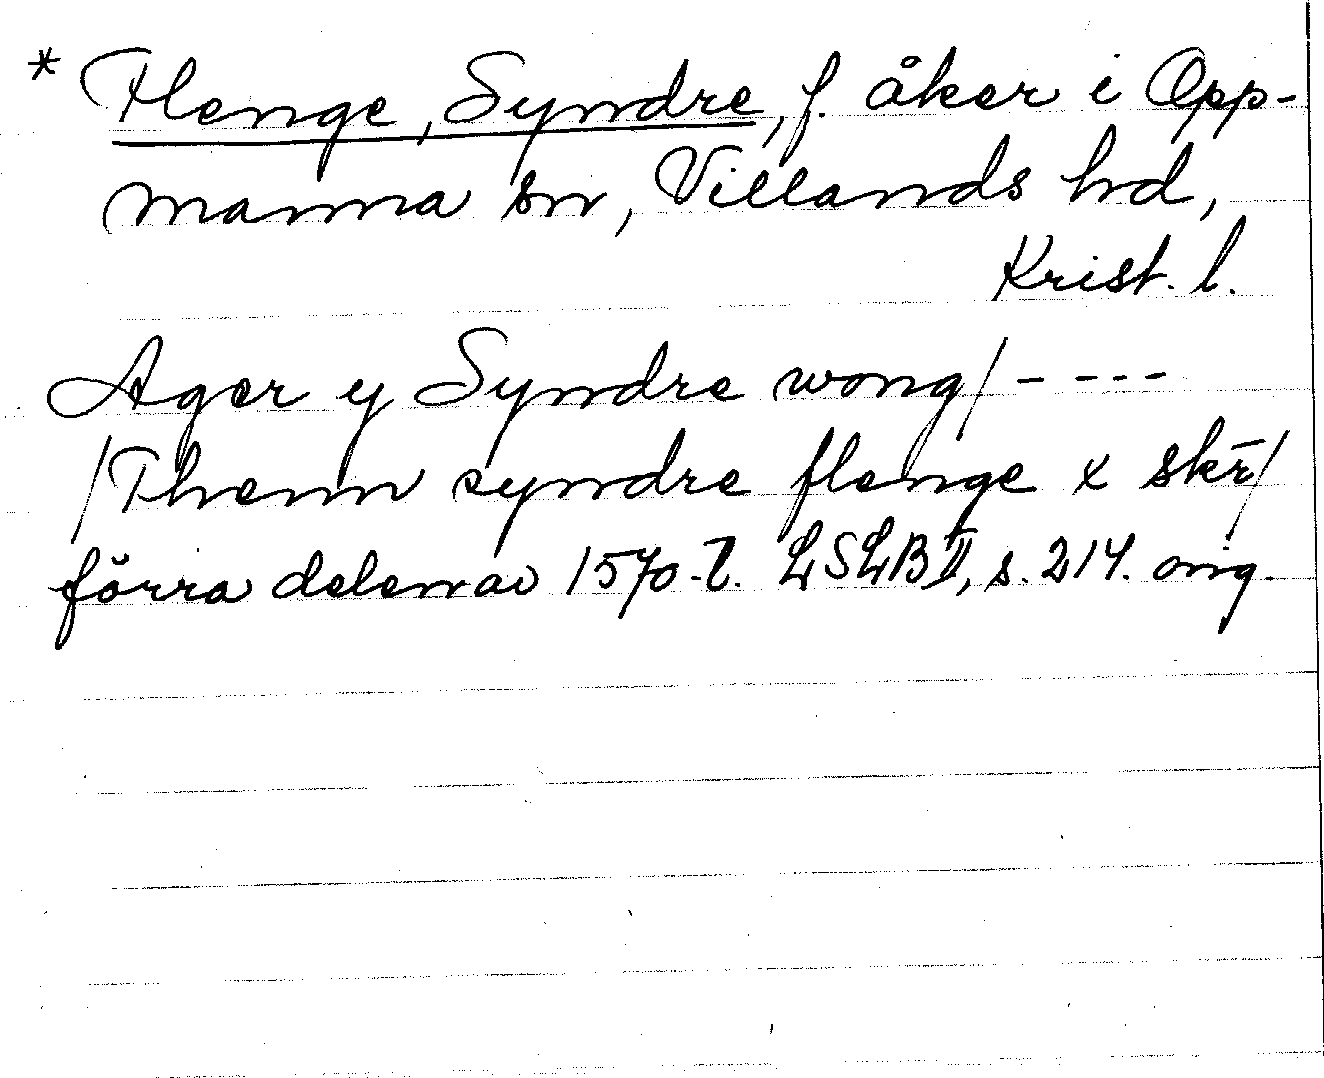 * Flenge, Syndre, f. åker i Opp-
manna sn, Villands hd,
Krist. l.
Ager y Syndre wong/ - - - -
/Thenn syndre flenge x skr̄/
förra delen av 1570-t. LSLB II, s. 214. orig.